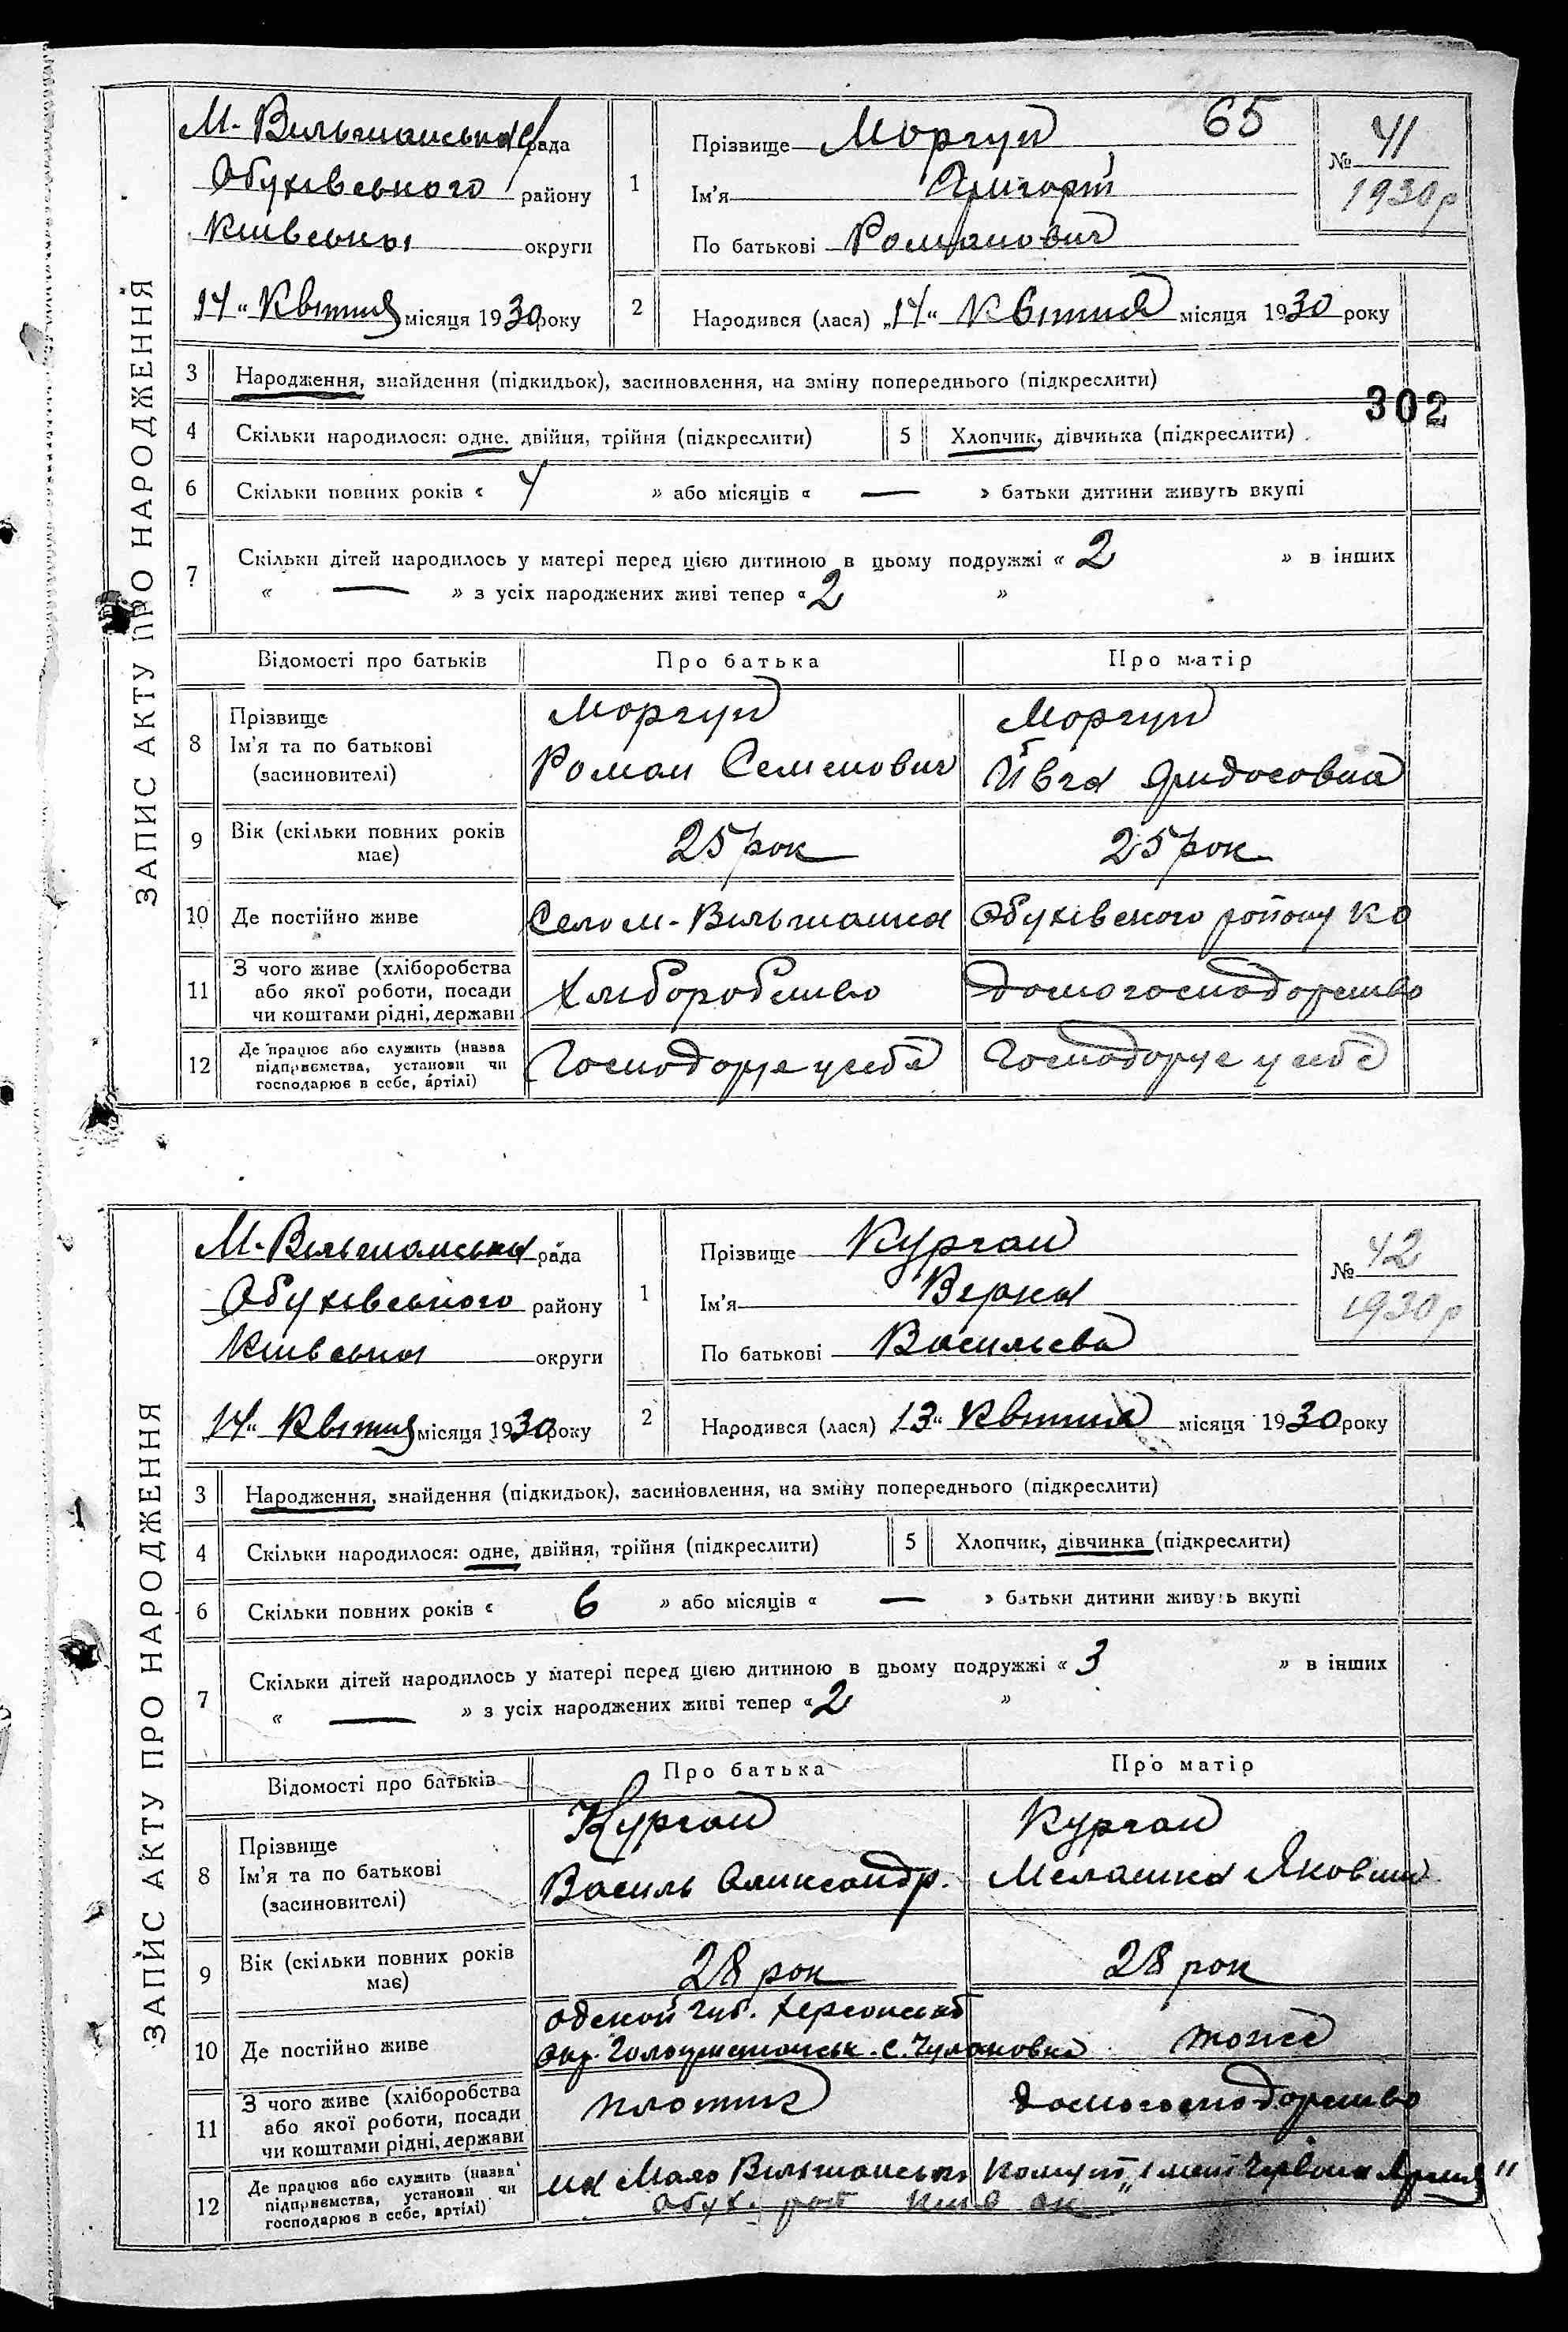 65
ЗАПИС АКТУ ПРО НАРОДЖЕННЯ
М-Вильшанська рада
Обухівського району
Київська округи
"14" Квітня місяця 1930 року
1
Прізвище Моргун
Ім'я Григорій
По батькові Романович
№ 41
1930 р
2
Народився (лася) "14" Квітня місяця 1930 року
302
3 Народження, знайдення (підкидьок), засиновлення, на зміну попереднього (підкреслити)
4 Скільки народилося: одне, двійня, трійня (підкреслити) 5 Хлопчик, дівчинка (підкреслити)
6 Скільки повних років « 4 » або місяців « — » батьки дитини живуть вкупі
7 Скільки дітей народилось у матері перед цією дитиною в цьому подружжі « 2 » в інших
« — » з усіх народжених живі тепер « 2 »
Відомості про батьків Про батька Про матір
8 Прізвище Ім'я та по батькові (засиновителі)
Моргун Моргун
Роман Семенович Ївга
9 Вік (скільки повних років має) 25 рок 25 рок
10 Де постійно живе Село М-Вильшанка Обухівського району К О
11 З чого живе (хліборобства або якої роботи, посади чи коштами рідні, держави Хліборобство домогосподорство
12 Де працює або служить (назва підприємства, установи чи господарює в себе, артілі) Господорує у себе Господорує у себе
ЗАПИС АКТУ ПРО НАРОДЖЕННЯ
М-Вильшанська рада
Обухівського району
Київська округи
"14" Квітня місяця 1930 року
1
Прізвище Курган
Ім'я Вєрка
По батькові Васильева
№ 42
1930 р
2
Народився (лася) "13" Квітня місяця 1930 року
3 Народження, знайдення (підкидьок), засиновлення, на зміну попереднього (підкреслити)
4 Скільки народилося: одне, двійня, трійня (підкреслити) 5 Хлопчик, дівчинка (підкреслити)
6 Скільки повних років « 6 » або місяців « — » батьки дитини живуть вкупі
7 Скільки дітей народилось у матері перед цією дитиною в цьому подружжі « 3 » в інших
« — » з усіх народжених живі тепер « 2 »
Відомості про батьків Про батька Про матір
8 Прізвище Ім'я та по батькові (засиновителі)
Курган Курган
Василь Олександр. Мелашка Яковна
9 Вік (скільки повних років має) 28 рок 28 рок
10 Де постійно живе
Одской губ. Херсонськ
окр. с. Чулаковка тоже
11 З чого живе (хліборобства або якої роботи, посади чи коштами рідні, держави плотник домогосподорство
12 Де працює або служить (назва підприємства, установи чи господарює в себе, артілі)
на Мало Вильшанські Комуні імені Червона Армія"
Обух. рай Київ ок